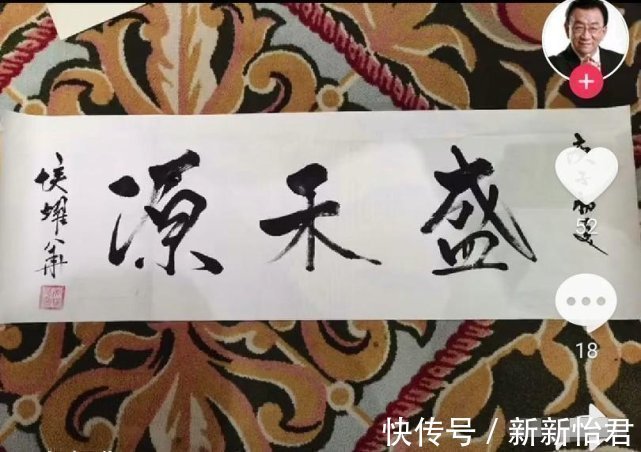 盛禾源
侯耀华
52
18
快传号 / 新新怡君